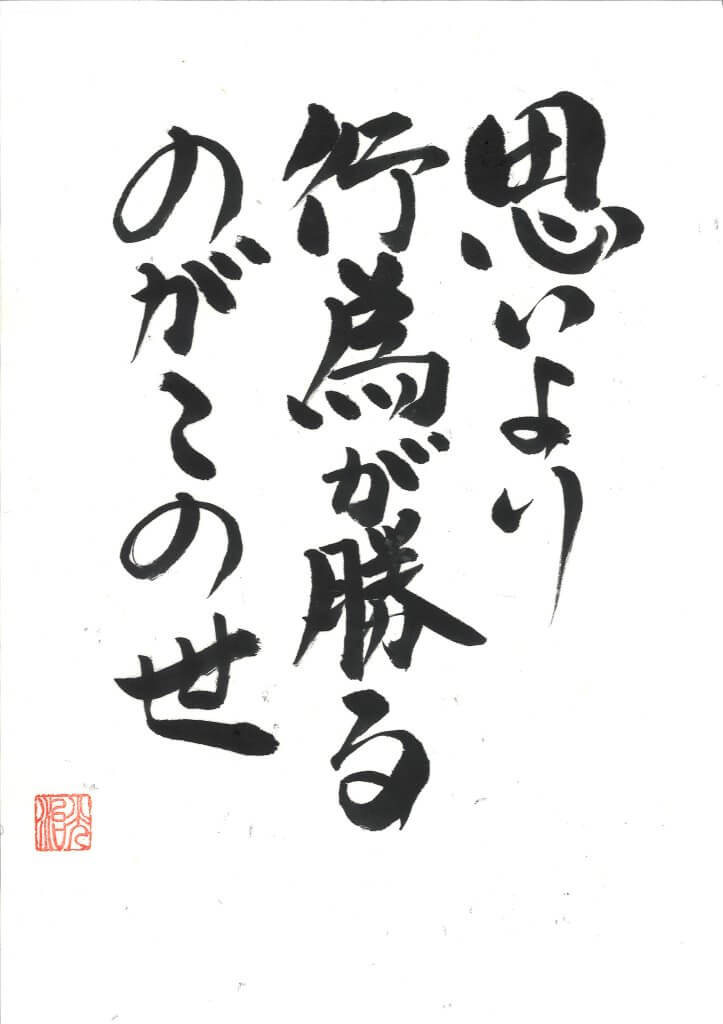 思いより
行為が勝る
のがこの世